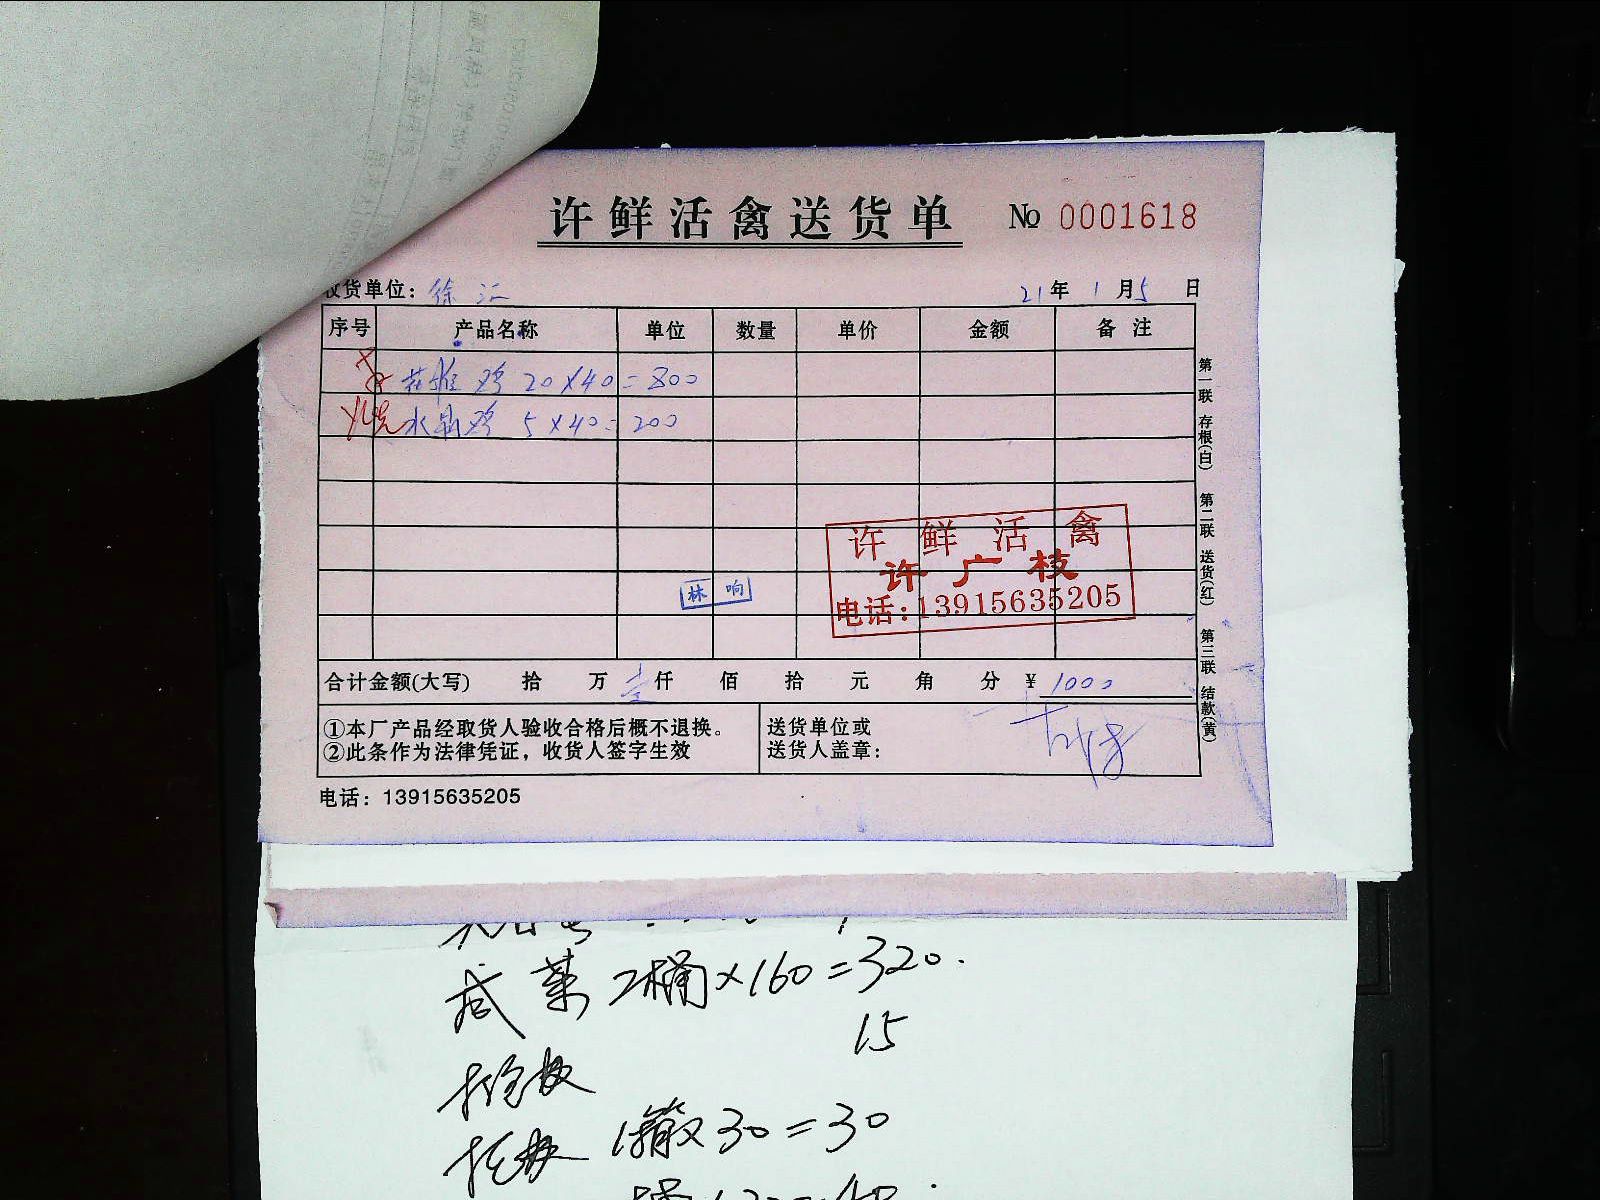 许鲜活禽送货单 No 0001618
收货单位: 徐汇 21年1月5日
序号 产品名称 单位 数量 单价 金额 备注
鸡 20×40=800
水晶鸡 5×40=200
第一联 存根(白) 第二联 送货(红) 第三联 结款(黄)
许鲜活禽
许广枝
电话:13915635205
林响
合计金额(大写) 拾 万 壹仟 佰 拾 元 角 分 ¥ 1000
①本厂产品经取货人验收合格后概不退换。
②此条作为法律凭证，收货人签字生效
送货单位或
送货人盖章:
电话: 13915635205
咸菜 2桶×160=320.
15
1箱×30=30